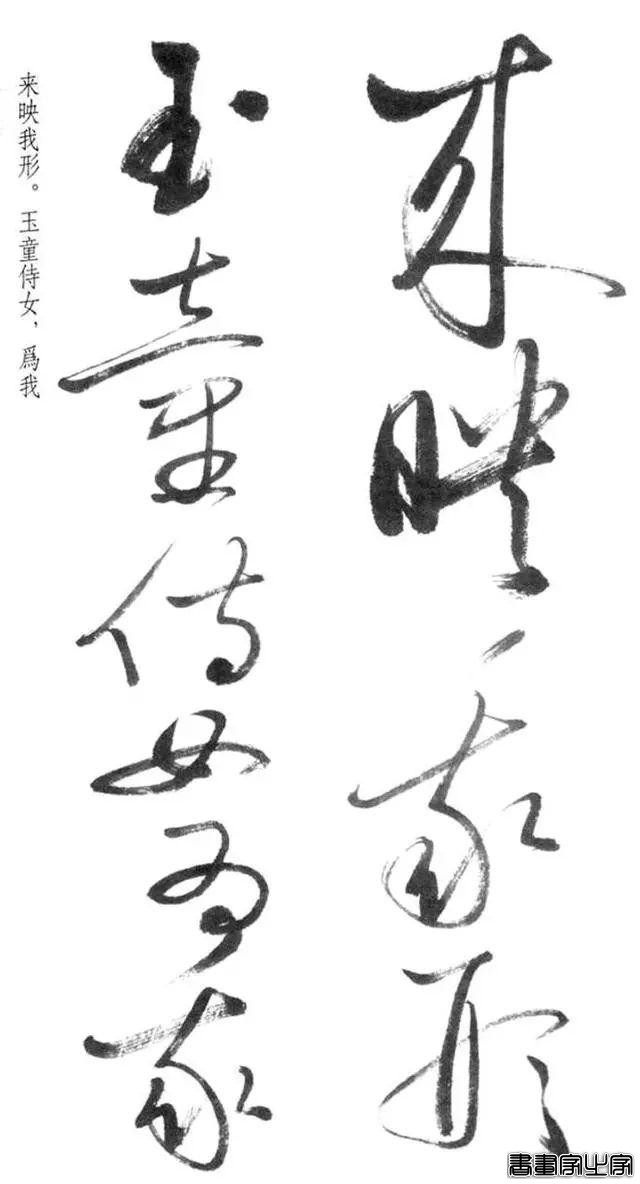 来映我形
玉童侍女爲我
来映我形。玉童侍女，爲我
書畫家之家